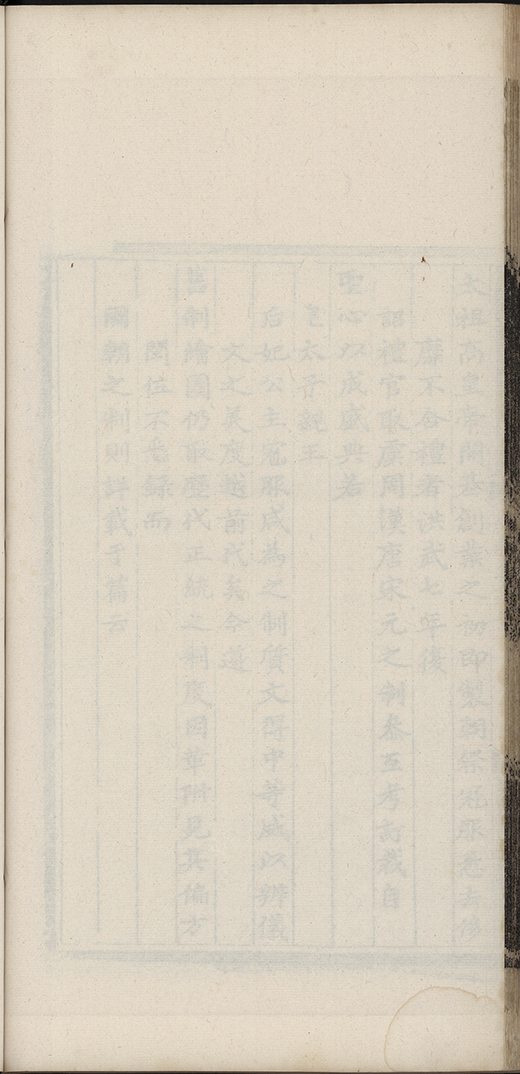 太祖高皇帝開基創業之初即製朝祭冠服悉去侈
靡不合禮者洪武七年復
詔禮官取虞周漢唐宋元之制參互考訂裁自
聖心以成盛典若
皇太子親王
后妃公主冠服咸為之制質文得中等威以辨儀
文之美度越前代矣今遵
舊制繪圖仍取歷代正統之制度因革附見其偏方
閏位不悉錄而
國朝之制則詳載于篇云